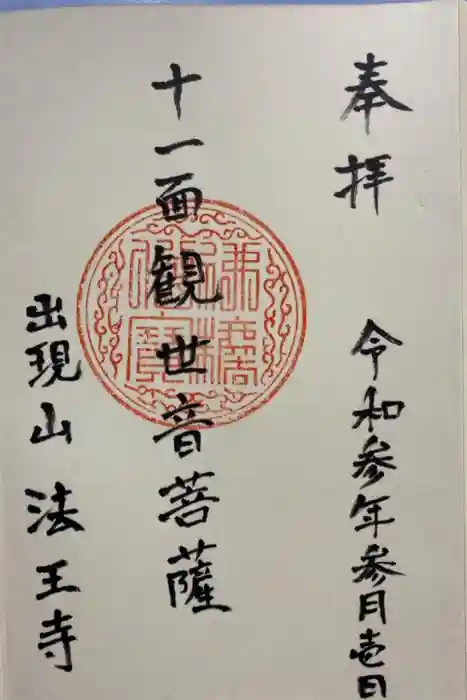 奉拝
令和参年参月壱日
十一面観世音菩薩
出現山法王寺